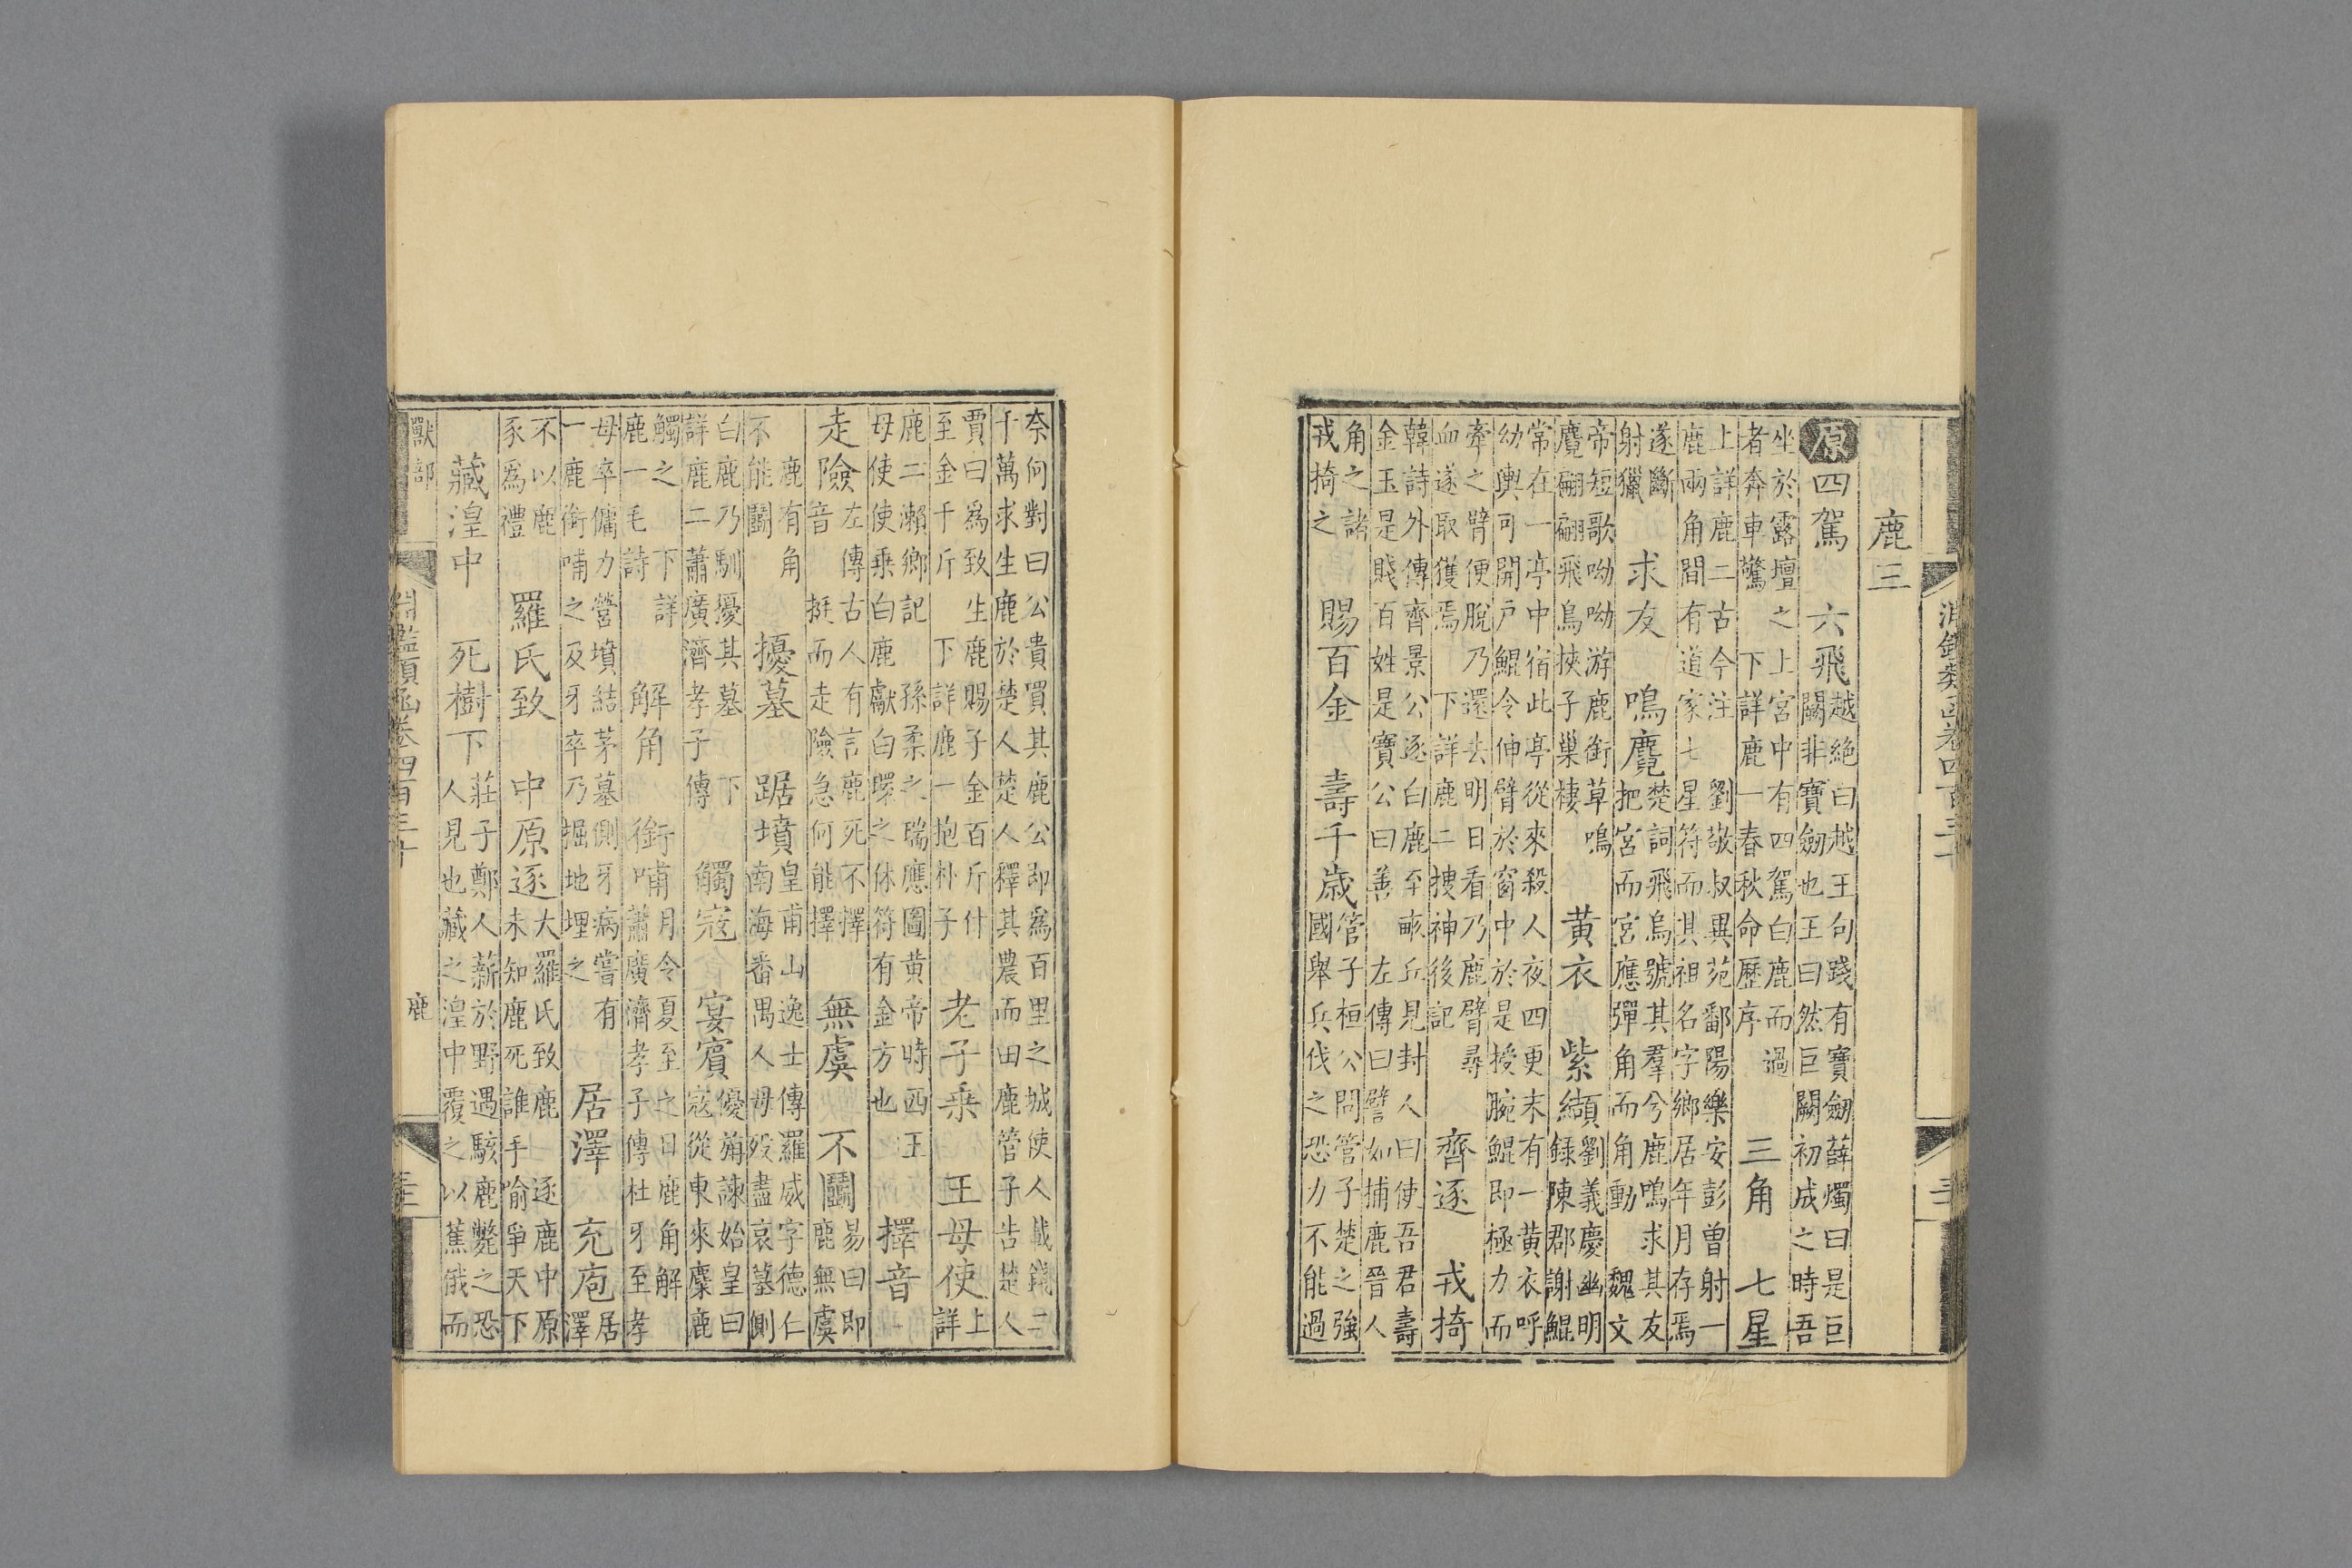 鹿三
原四駕　六飛越絕曰越王句踐有寶劒薛燭曰是巨闕非寶劒也王曰然巨闕初成之時吾
坐於露壇之上宮中有四駕白鹿而過者奔車驚　下詳鹿一春秋命歷序　三角　七星
上詳鹿二古今注　劉敬叔異苑鄱陽樂安彭曾射一鹿兩角間有道家七星符而其祖名字鄉居年月存焉
遂斷射獵　求友　鳴麑楚詞飛鳥號其羣兮鹿鳴求其友把宮而宮應彈角而角動　魏文
帝短歌呦呦游鹿銜草鳴麑翩翩飛鳥挾子巢棲　黃衣　紫纈劉義慶幽明錄陳郡謝鯤
常在一亭中宿此亭從來殺人夜四更末有一黃衣呼幼輿可開戶鯤令伸臂於窗中於是授腕鯤即極力而
牽之臂便脫乃還去明日看乃鹿臂尋血遂取獲焉　下詳鹿二搜神後記　齊逐　戎掎
韓詩外傳齊景公逐白鹿至畞丘見封人曰使吾君壽金玉是賤百姓是寶公曰善　左傳曰譬如捕鹿晉人
角之諸戎掎之　賜百金　壽千歲管子桓公問管子楚之強國舉兵伐之恐力不能過
奈何對曰公貴買其鹿公即爲百里之城使人載錢二千萬求生鹿於楚人楚人釋其農而田鹿管子告楚人
賈曰爲致生鹿賜子金百斤什至金千斤　下詳鹿一抱朴子　老子乘　王母使上詳
鹿二瀨鄉記　孫柔之瑞應圖黃帝時西王母使使乘白鹿獻白環之休符有金方也　擇音
走險左傳古人有言鹿死不擇音　挺而走險急何能擇　無虞　不鬭易曰即鹿無虞
鹿有角不能鬭　擾墓　踞墳皇甫山逸士傳羅威字德仁南海番禺人母歿盡哀墓側
白鹿乃馴擾其墓　下詳鹿二蕭廣濟孝子傳　觸寇　宴賓優旃諫始皇曰寇從東來麋鹿
觸之　下詳鹿一毛詩　解角　銜哺月令夏至之日鹿角解蕭廣濟孝子傳杜牙至孝
母卒傭力營墳結茅墓側牙病嘗有一鹿銜哺之及牙卒乃掘地埋之　居澤　充庖居澤
不以鹿豕爲禮　羅氏致　中原逐大羅氏致鹿　逐鹿中原未知鹿死誰手喻爭天下
藏湟中　死樹下莊子鄭人薪於野遇駭鹿斃之恐人見也藏之湟中覆之以蕉俄而
獸部　淵鑑類函卷四百三十　鹿